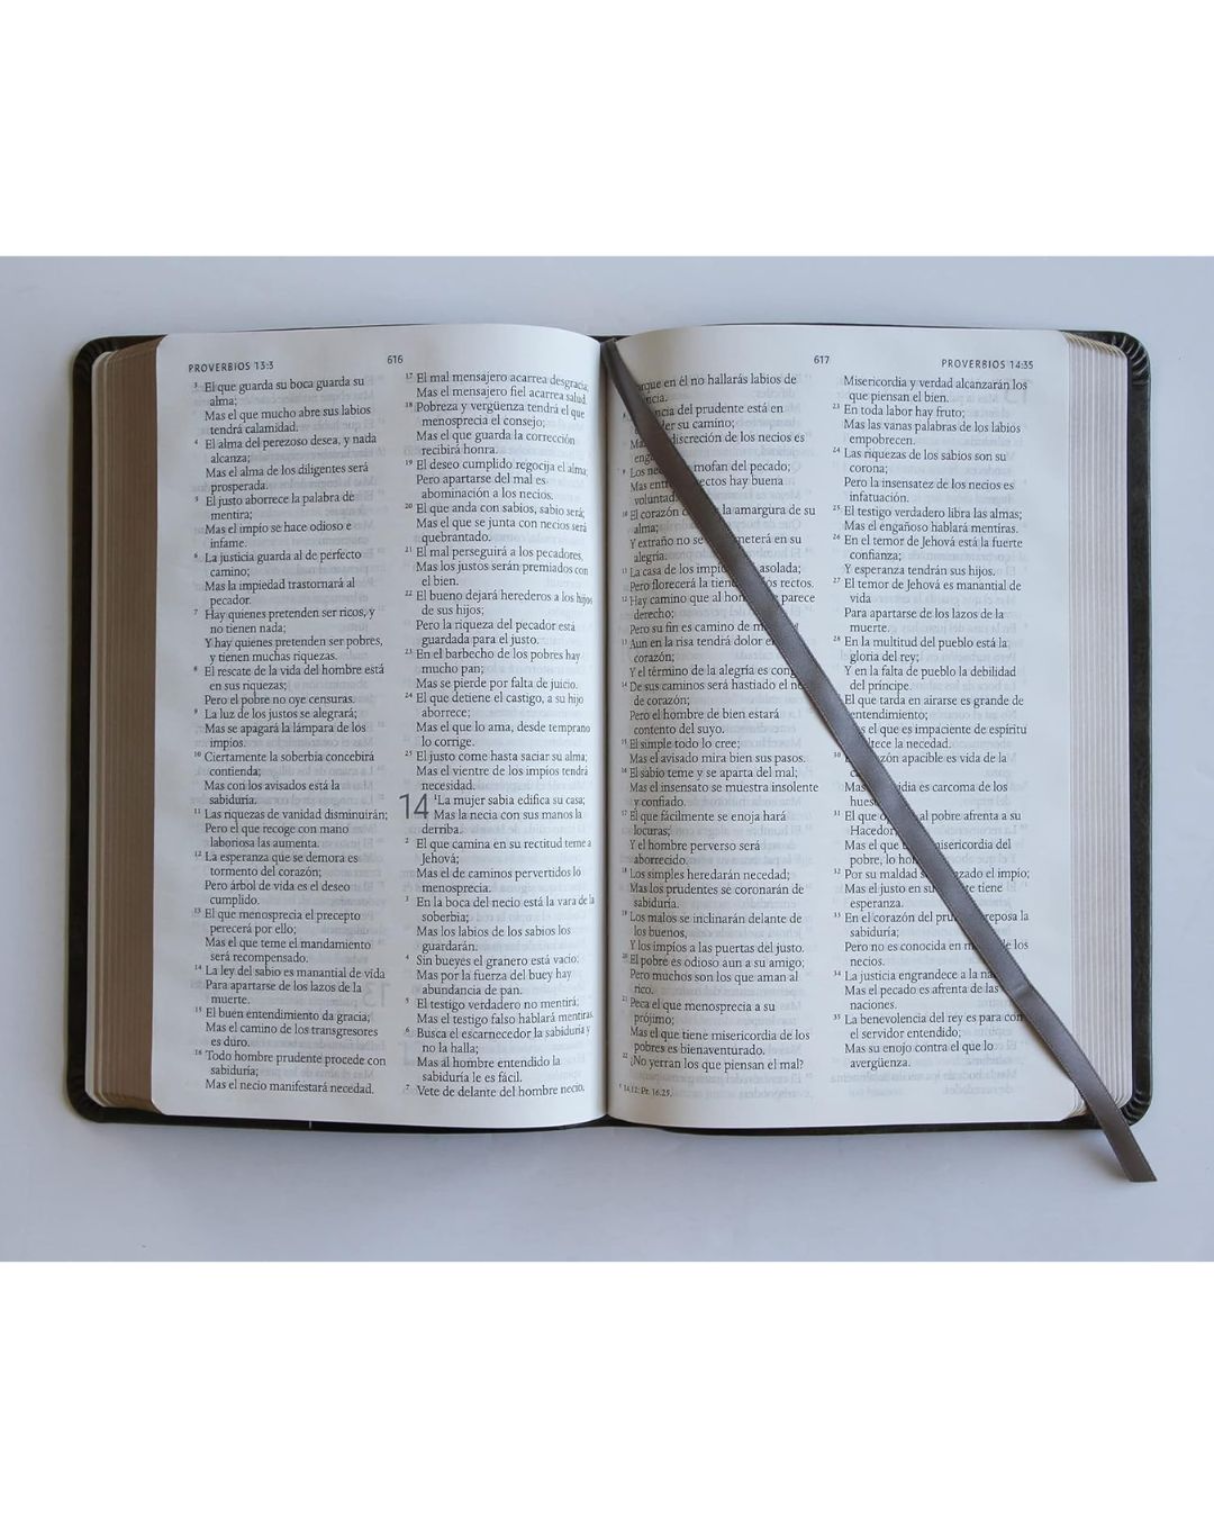 PROVERBIOS 13:3
616
3 El que guarda su boca guarda su
alma;
Mas el que mucho abre sus labios
tendrá calamidad.
4 El alma del perezoso desea, y nada
alcanza;
Mas el alma de los diligentes será
prosperada.
5 El justo aborrece la palabra de
mentira;
Mas el impío se hace odioso e
infame.
6 La justicia guarda al de perfecto
camino;
Mas la impiedad trastornará al
pecador.
7 Hay quienes pretenden ser ricos, y
no tienen nada;
Y hay quienes pretenden ser pobres,
y tienen muchas riquezas.
8 El rescate de la vida del hombre está
en sus riquezas;
Pero el pobre no oye censuras.
9 La luz de los justos se alegrará;
Mas se apagará la lámpara de los
impíos.
10 Ciertamente la soberbia concebirá
contienda;
Mas con los avisados está la
sabiduría.
11 Las riquezas de vanidad disminuirán;
Pero el que recoge con mano
laboriosa las aumenta.
12 La esperanza que se demora es
tormento del corazón;
Pero árbol de vida es el deseo
cumplido.
13 El que menosprecia el precepto
perecerá por ello;
Mas el que teme el mandamiento
será recompensado.
14 La ley del sabio es manantial de vida
Para apartarse de los lazos de la
muerte.
15 El buen entendimiento da gracia;
Mas el camino de los transgresores
es duro.
16 Todo hombre prudente procede con
sabiduría;
Mas el necio manifestará necedad.
17 El mal mensajero acarrea desgracia;
Mas el mensajero fiel acarrea salud.
18 Pobreza y vergüenza tendrá el que
menosprecia el consejo;
Mas el que guarda la corrección
recibirá honra.
19 El deseo cumplido regocija el alma;
Pero apartarse del mal es
abominación a los necios.
20 El que anda con sabios, sabio será;
Mas el que se junta con necios será
quebrantado.
21 El mal perseguirá a los pecadores,
Mas los justos serán premiados con
el bien.
22 El bueno dejará herederos a los hijos
de sus hijos;
Pero la riqueza del pecador está
guardada para el justo.
23 En el barbecho de los pobres hay
mucho pan;
Mas se pierde por falta de juicio.
24 El que detiene el castigo, a su hijo
aborrece;
Mas el que lo ama, desde temprano
lo corrige.
25 El justo come hasta saciar su alma;
Mas el vientre de los impíos tendrá
necesidad.
14 1 La mujer sabia edifica su casa;
Mas la necia con sus manos la
derriba.
2 El que camina en su rectitud teme a
Jehová;
Mas el de caminos pervertidos lo
menosprecia.
3 En la boca del necio está la vara de la
soberbia;
Mas los labios de los sabios los
guardarán.
4 Sin bueyes el granero está vacío;
Mas por la fuerza del buey hay
abundancia de pan.
5 El testigo verdadero no mentirá;
Mas el testigo falso hablará mentiras.
6 Busca el escarnecedor la sabiduría y
no la halla;
Mas al hombre entendido la
sabiduría le es fácil.
7 Vete de delante del hombre necio,
617
PROVERBIOS 14:35
en él no hallarás labios de
del prudente está en
su camino;
discreción de los necios es
9 Los mofan del pecado;
Mas hay buena
voluntad.
10 El corazón la amargura de su
alma;
Y extraño no se en su
alegría.
11 La casa de los asolada;
Pero florecerá la rectos.
12 Hay camino que al parece
derecho;
Pero su fin es camino de
13 Aun en la risa tendrá dolor
corazón;
Y el término de la alegría es
14 De sus caminos será hastiado el
de corazón;
Pero el hombre de bien estará
contento del suyo.
15 El simple todo lo cree;
Mas el avisado mira bien sus pasos.
16 El sabio teme y se aparta del mal;
Mas el insensato se muestra insolente
y confiado.
17 El que fácilmente se enoja hará
locuras;
Y el hombre perverso será
aborrecido.
18 Los simples heredarán necedad;
Mas los prudentes se coronarán de
sabiduría.
19 Los malos se inclinarán delante de
los buenos,
Y los impíos a las puertas del justo.
20 El pobre es odioso aun a su amigo;
Pero muchos son los que aman al
rico.
21 Peca el que menosprecia a su
prójimo;
Mas el que tiene misericordia de los
pobres es bienaventurado.
22 ¿No yerran los que piensan el mal?
14.12: Pr. 16.25.
Misericordia y verdad alcanzarán los
que piensan el bien.
23 En toda labor hay fruto;
Mas las vanas palabras de los labios
empobrecen.
24 Las riquezas de los sabios son su
corona;
Pero la insensatez de los necios es
infatuación.
25 El testigo verdadero libra las almas;
Mas el engañoso hablará mentiras.
26 En el temor de Jehová está la fuerte
confianza;
Y esperanza tendrán sus hijos.
27 El temor de Jehová es manantial de
vida
Para apartarse de los lazos de la
muerte.
28 En la multitud del pueblo está la
gloria del rey;
Y en la falta de pueblo la debilidad
del príncipe.
El que tarda en airarse es grande de
entendimiento;
el que es impaciente de espíritu
la necedad.
30 apacible es vida de la
Mas es carcoma de los
31 El que al pobre afrenta a su
Hacedor;
Mas el que misericordia del
pobre, lo
32 Por su maldad el impío;
Mas el justo en su tiene
esperanza.
33 En el corazón del reposa la
sabiduría;
Pero no es conocida en los
necios.
34 La justicia engrandece a la
Mas el pecado es afrenta de las
naciones.
35 La benevolencia del rey es para con
el servidor entendido;
Mas su enojo contra el que lo
avergüenza.